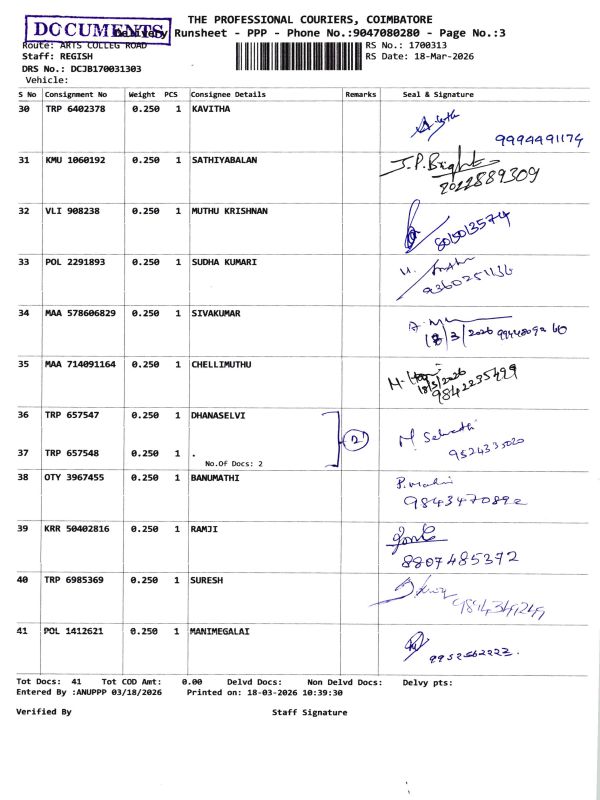 THE PROFESSIONAL COURIERS, COIMBATORE
DOCUMENTS
Delivery Runsheet - PPP - Phone No.:9047080280 - Page No.:3
Route: ARTS COLLEG ROAD
RS No.: 1700313
Staff: REGISH
RS Date: 18-Mar-2026
DRS No.: DCJB170031303
Vehicle:
S No Consignment No Weight PCS Consignee Details Remarks Seal & Signature
30 TRP 6402378 0.250 1 KAVITHA
9994491174
31 KMU 1060192 0.250 1 SATHIYABALAN
J.P.Bright
32 VLI 908238 0.250 1 MUTHU KRISHNAN
8015013574
33 POL 2291893 0.250 1 SUDHA KUMARI
9360251136
34 MAA 578606829 0.250 1 SIVAKUMAR
18/3/2026
35 MAA 714091164 0.250 1 CHELLIMUTHU
18/3/2026
9842235499
36 TRP 657547 0.250 1 DHANASELVI
2
37 TRP 657548 0.250 1 .
No.Of Docs: 2
38 OTY 3967455 0.250 1 BANUMATHI
9843470892
39 KRR 50402816 0.250 1 RAMJI
8807485372
40 TRP 6985369 0.250 1 SURESH
41 POL 1412621 0.250 1 MANIMEGALAI
9952562223.
Tot Docs: 41 Tot COD Amt: 0.00 Delvd Docs: Non Delvd Docs: Delvy pts:
Entered By :ANUPPP 03/18/2026 Printed on: 18-03-2026 10:39:30
Verified By Staff Signature